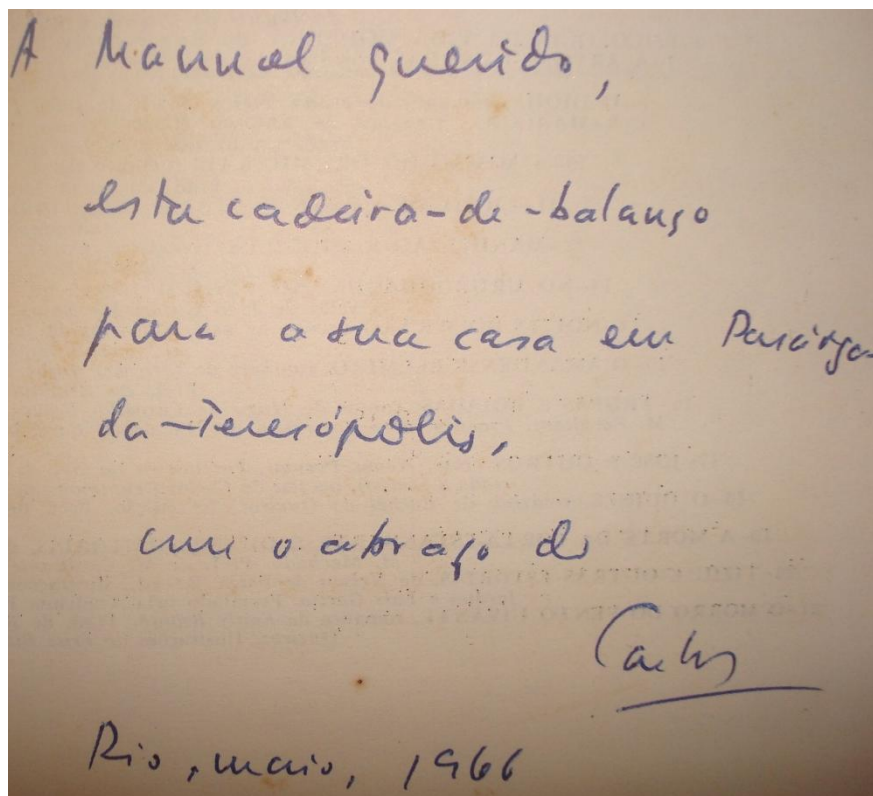 A Manuel querido,
esta cadeira-de-balanço
para a sua casa em Pasárga-
da-Teresópolis,
com o abraço do
Carlos
Rio, maio, 1966